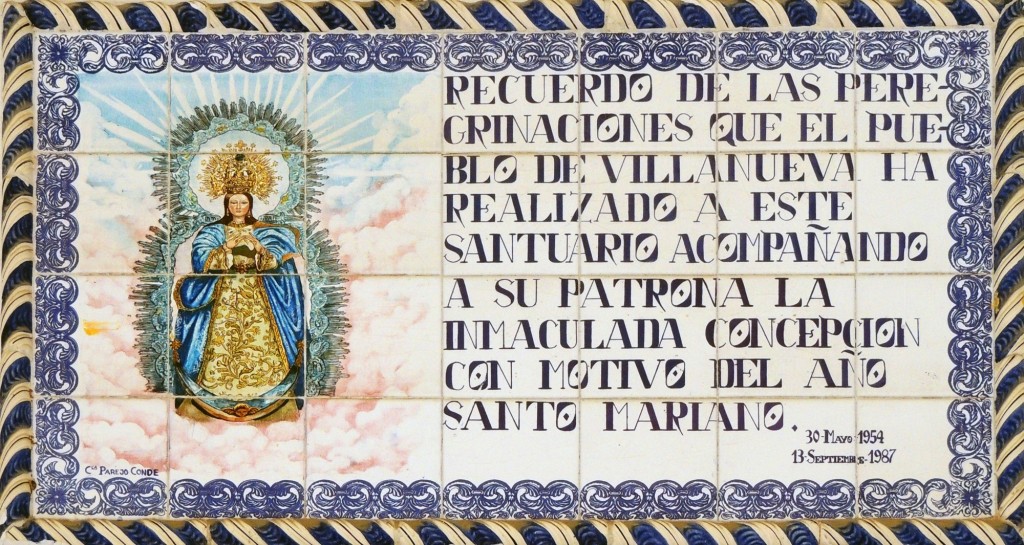 RECUERDO DE LAS PERE-
GRINACIONES QUE EL PUE-
BLO DE VILLANUEVA HA
REALIZADO A ESTE
SANTUARIO ACOMPAÑANDO
A SU PATRONA LA
INMACULADA CONCEPCION
CON MOTIVO DEL AÑO
SANTO MARIANO.
30-MAYO-1954
13-SEPTIEMBRE-1987
Cᴸᴬ PAREJO CONDE